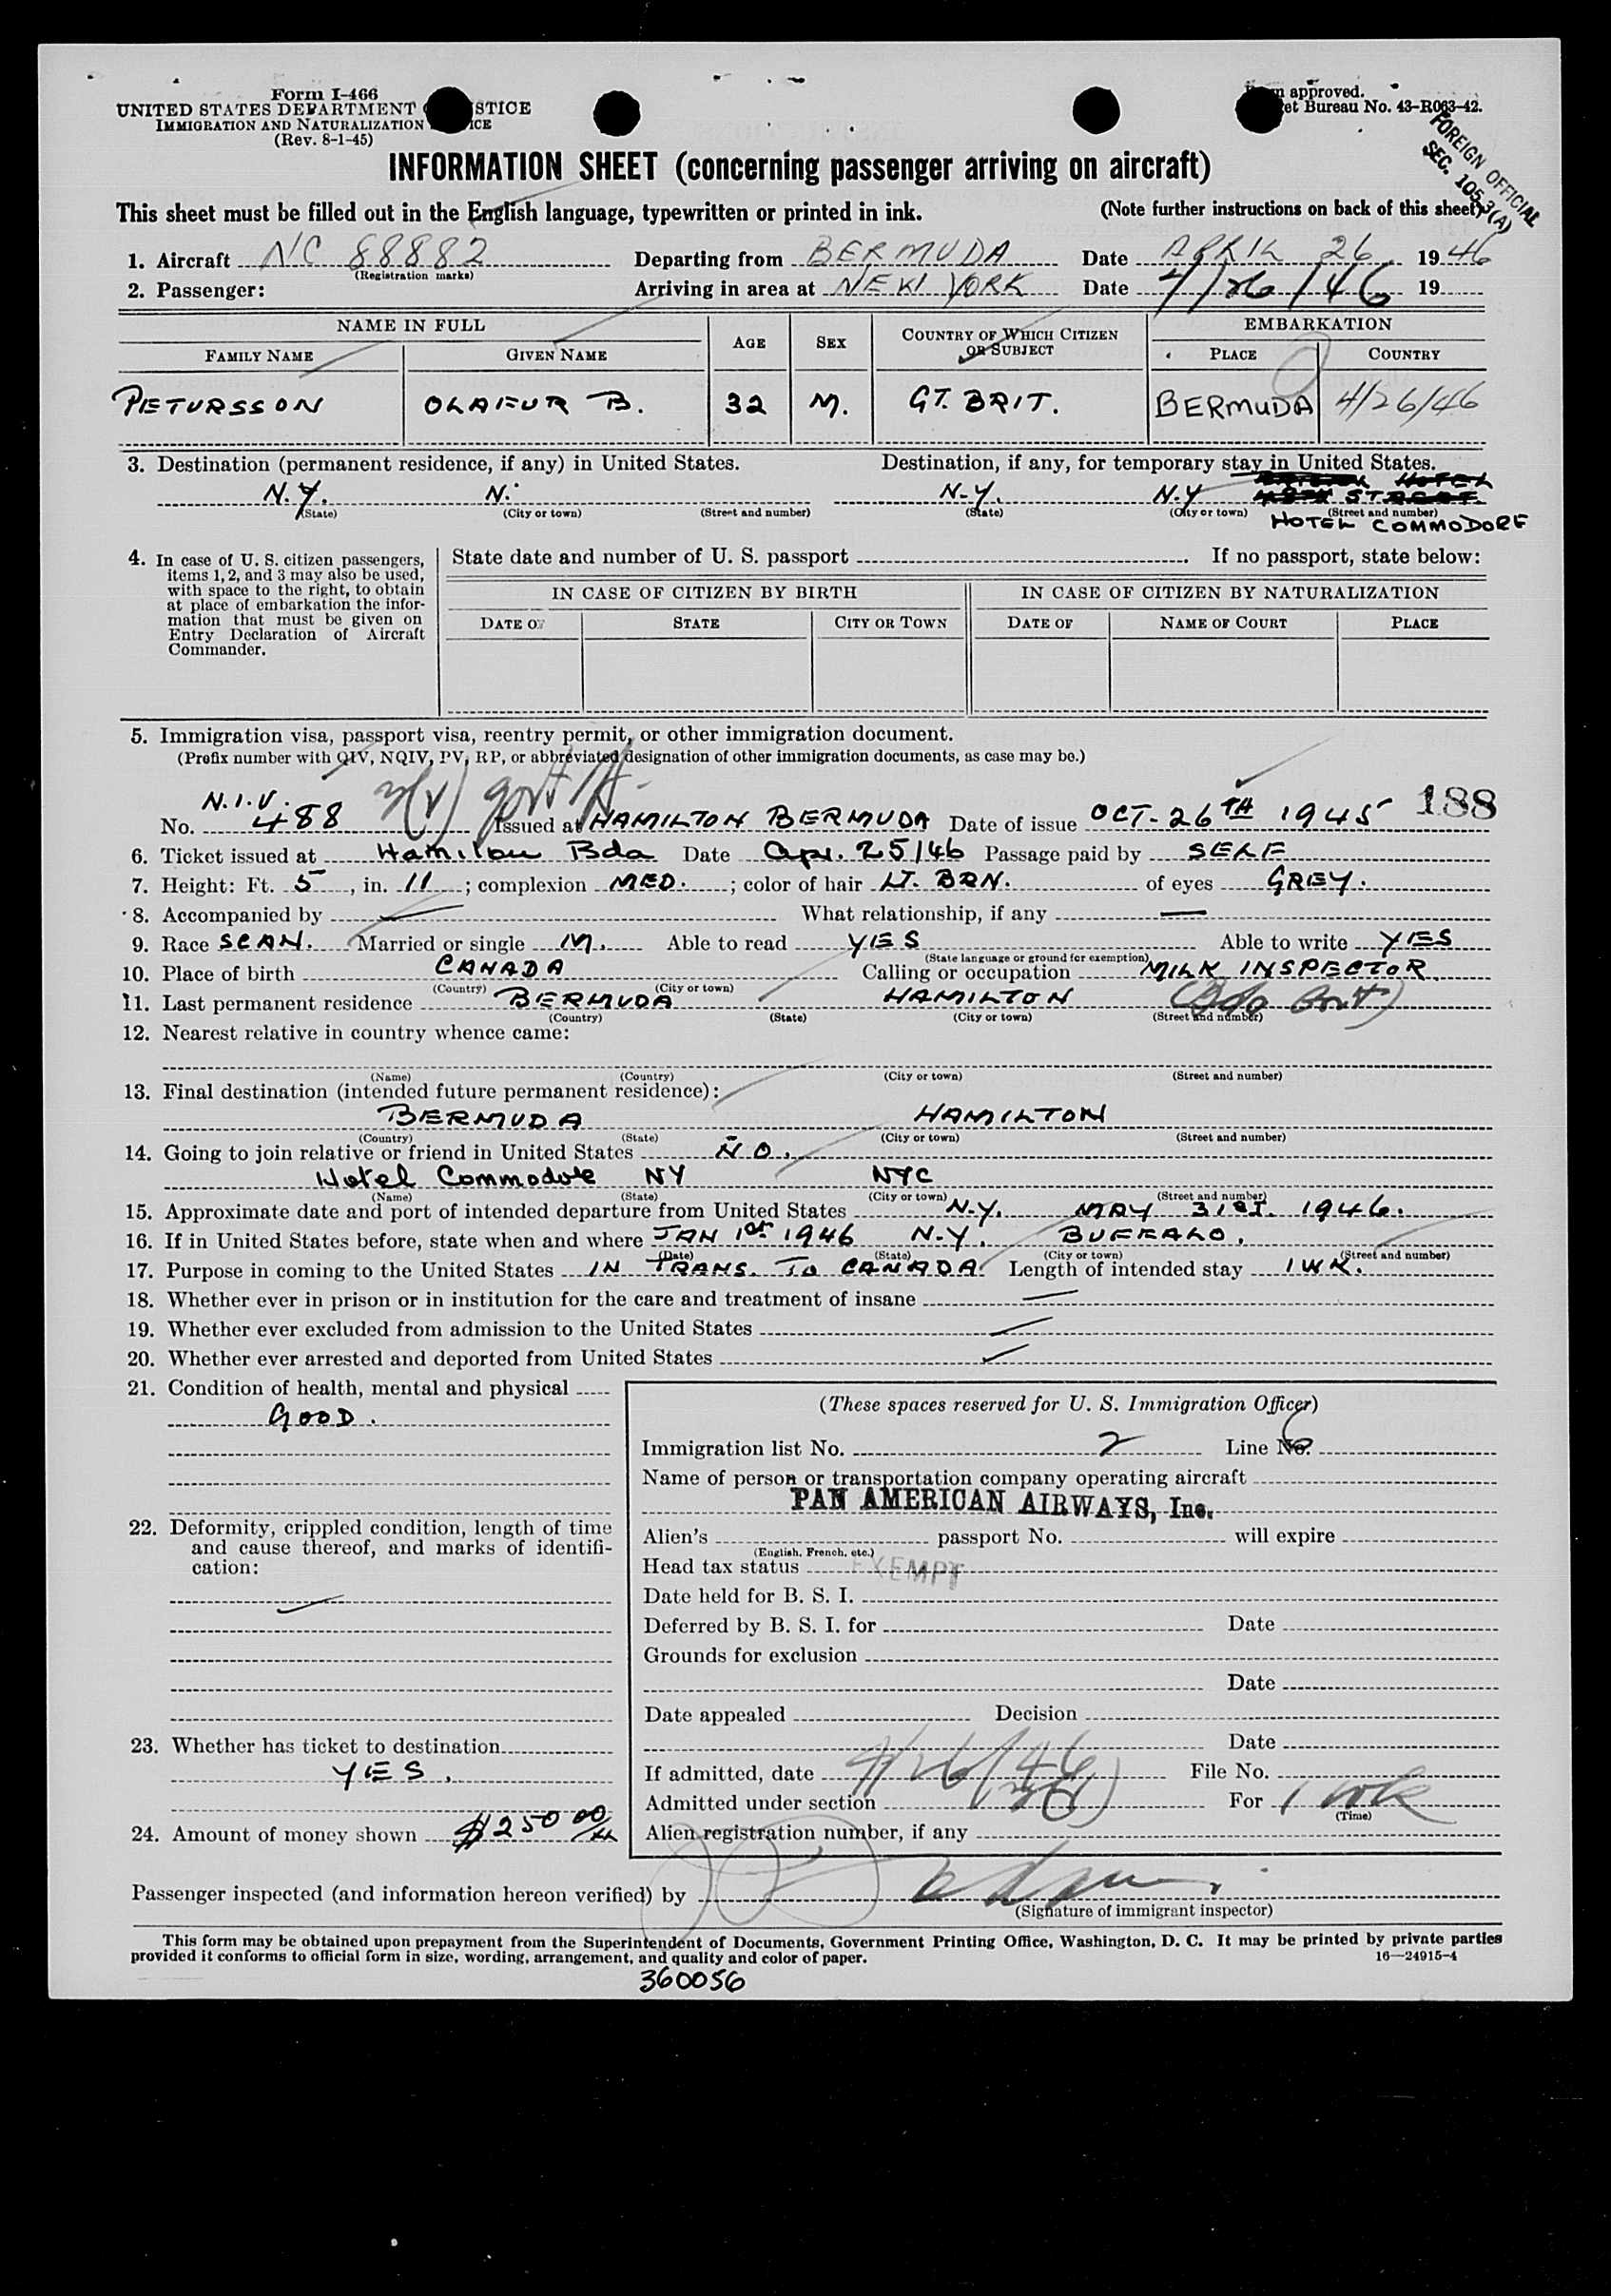 Form I-466
UNITED STATES DEPARTMENT STICE
IMMIGRATION AND NATURALIZATION ICE
(Rev. 8-1-45)
approved.
et Bureau No. 43-R063-42.
FOREIGN OFFICIAL
SEC. 105-3(A)
INFORMATION SHEET (concerning passenger arriving on aircraft)
This sheet must be filled out in the English language, typewritten or printed in ink. (Note further instructions on back of this sheet)
1. Aircraft NC 88882 Departing from BERMUDA Date APRIL 26 1946
(Registration marks)
2. Passenger: Arriving in area at NEW YORK Date 4/26/46 19
NAME IN FULL AGE SEX COUNTRY OF WHICH CITIZEN OR SUBJECT EMBARKATION
FAMILY NAME GIVEN NAME PLACE COUNTRY
PETURSSON OLAFUR B. 32 M. GT. BRIT. BERMUDA 4/26/46
3. Destination (permanent residence, if any) in United States. Destination, if any, for temporary stay in United States.
HOTEL
N.Y. N. N.Y. N.Y
(State) (City or town) (Street and number) (State) (City or town) (Street and number)
HOTEL COMMODORE
4. In case of U. S. citizen passengers, items 1, 2, and 3 may also be used, with space to the right, to obtain at place of embarkation the information that must be given on Entry Declaration of Aircraft Commander.
State date and number of U. S. passport If no passport, state below:
IN CASE OF CITIZEN BY BIRTH IN CASE OF CITIZEN BY NATURALIZATION
DATE OF STATE CITY OR TOWN DATE OF NAME OF COURT PLACE
5. Immigration visa, passport visa, reentry permit, or other immigration document.
(Prefix number with QIV, NQIV, PV, RP, or abbreviated designation of other immigration documents, as case may be.)
N.I.V. 188
No. 488 Issued at HAMILTON BERMUDA Date of issue OCT. 26TH 1945
6. Ticket issued at Hamilton Bda Date Apr. 25/46 Passage paid by SELF
7. Height: Ft. 5, in. 11; complexion MED.; color of hair LT. BRN. of eyes GREY.
8. Accompanied by — What relationship, if any —
9. Race SCAN. Married or single M. Able to read YES Able to write YES
(State language or ground for exemption)
10. Place of birth CANADA Calling or occupation MILK INSPECTOR
(Country) (City or town)
11. Last permanent residence BERMUDA HAMILTON (Bda Govt)
(Country) (State) (City or town) (Street and number)
12. Nearest relative in country whence came:
(Name) (Country) (City or town) (Street and number)
13. Final destination (intended future permanent residence):
BERMUDA HAMILTON
(Country) (State) (City or town) (Street and number)
14. Going to join relative or friend in United States NO.
Hotel Commodore NY NYC
(Name) (State) (City or town) (Street and number)
15. Approximate date and port of intended departure from United States N.Y. MAY 31ST. 1946.
16. If in United States before, state when and where JAN 1st 1946 N.Y. BUFFALO.
(Date) (State) (City or town) (Street and number)
17. Purpose in coming to the United States IN TRANS. TO CANADA. Length of intended stay 1 WK.
18. Whether ever in prison or in institution for the care and treatment of insane —
19. Whether ever excluded from admission to the United States
20. Whether ever arrested and deported from United States
21. Condition of health, mental and physical
GOOD.
22. Deformity, crippled condition, length of time and cause thereof, and marks of identification:
23. Whether has ticket to destination
YES.
24. Amount of money shown $250 00/xx
(These spaces reserved for U. S. Immigration Officer)
Immigration list No. 2 Line No. 6
Name of person or transportation company operating aircraft
PAN AMERICAN AIRWAYS, Inc.
Alien's passport No. will expire
(English, French, etc.)
Head tax status EXEMPT
Date held for B. S. I.
Deferred by B. S. I. for Date
Grounds for exclusion
Date
Date appealed Decision
Date
If admitted, date 4/26/46 File No.
Admitted under section For 1 wk
(Time)
Alien registration number, if any
Passenger inspected (and information hereon verified) by
(Signature of immigrant inspector)
This form may be obtained upon prepayment from the Superintendent of Documents, Government Printing Office, Washington, D. C. It may be printed by private parties
provided it conforms to official form in size, wording, arrangement, and quality and color of paper. 16—24915-4
360056